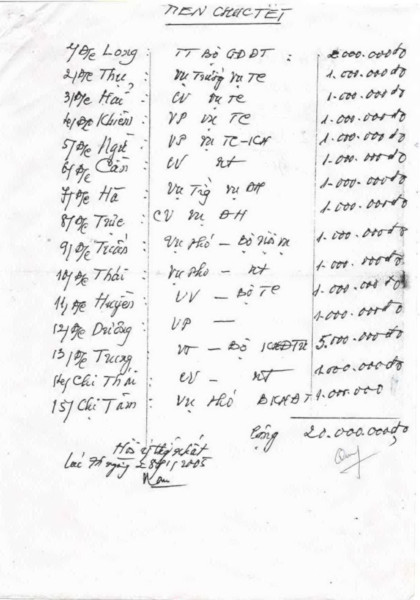 TIỀN CHÚC TẾT
1/ Đ/c Long : TT Bộ GDĐT : 2.000.000đ
2/ Đ/c Thụ : Vụ Trưởng Vụ TC 1.000.000đ
3/ Đ/c Hải : CV Vụ TC 1.000.000đ
4/ Đ/c Khiên : VP Vụ TC 1.000.000đ
5/ Đ/c : VP Vụ TC-KH 1.000.000đ
6/ Đ/c Cần : CV nt 1.000.000đ
7/ Đ/c Hà : Vụ Trg Vụ ĐH 1.000.000đ
8/ Đ/c Trúc : CV Vụ ĐH 1.000.000đ
9/ Đ/c Tuấn : Vụ Phó - Bộ 1.000.000đ
10/ Đ/c Thái : Vụ Phó - nt 1.000.000đ
11/ Đ/c Huyền : - Bộ TC 1.000.000đ
12/ Đ/c Dương : VP - 1.000.000đ
13/ Đ/c Trung - Bộ 5.000.000đ
14/ Chị Thái : CV - nt 1.000.000đ
15/ Chị Tâm : Vụ Phó BKHĐT 1.000.000
Cộng 20.000.000đ
2005